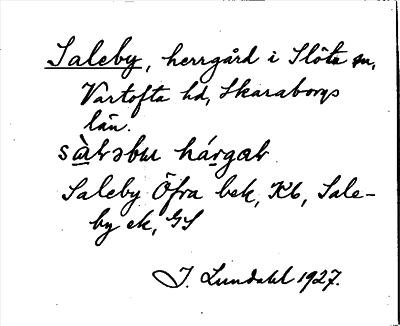 Saleby, herrgård i Slöta sn,
Vartofta hd, Skaraborgs
län.
Saleby Öfra bek, Kb, Sale-
by ek, GS
J. Lundahl 1927.